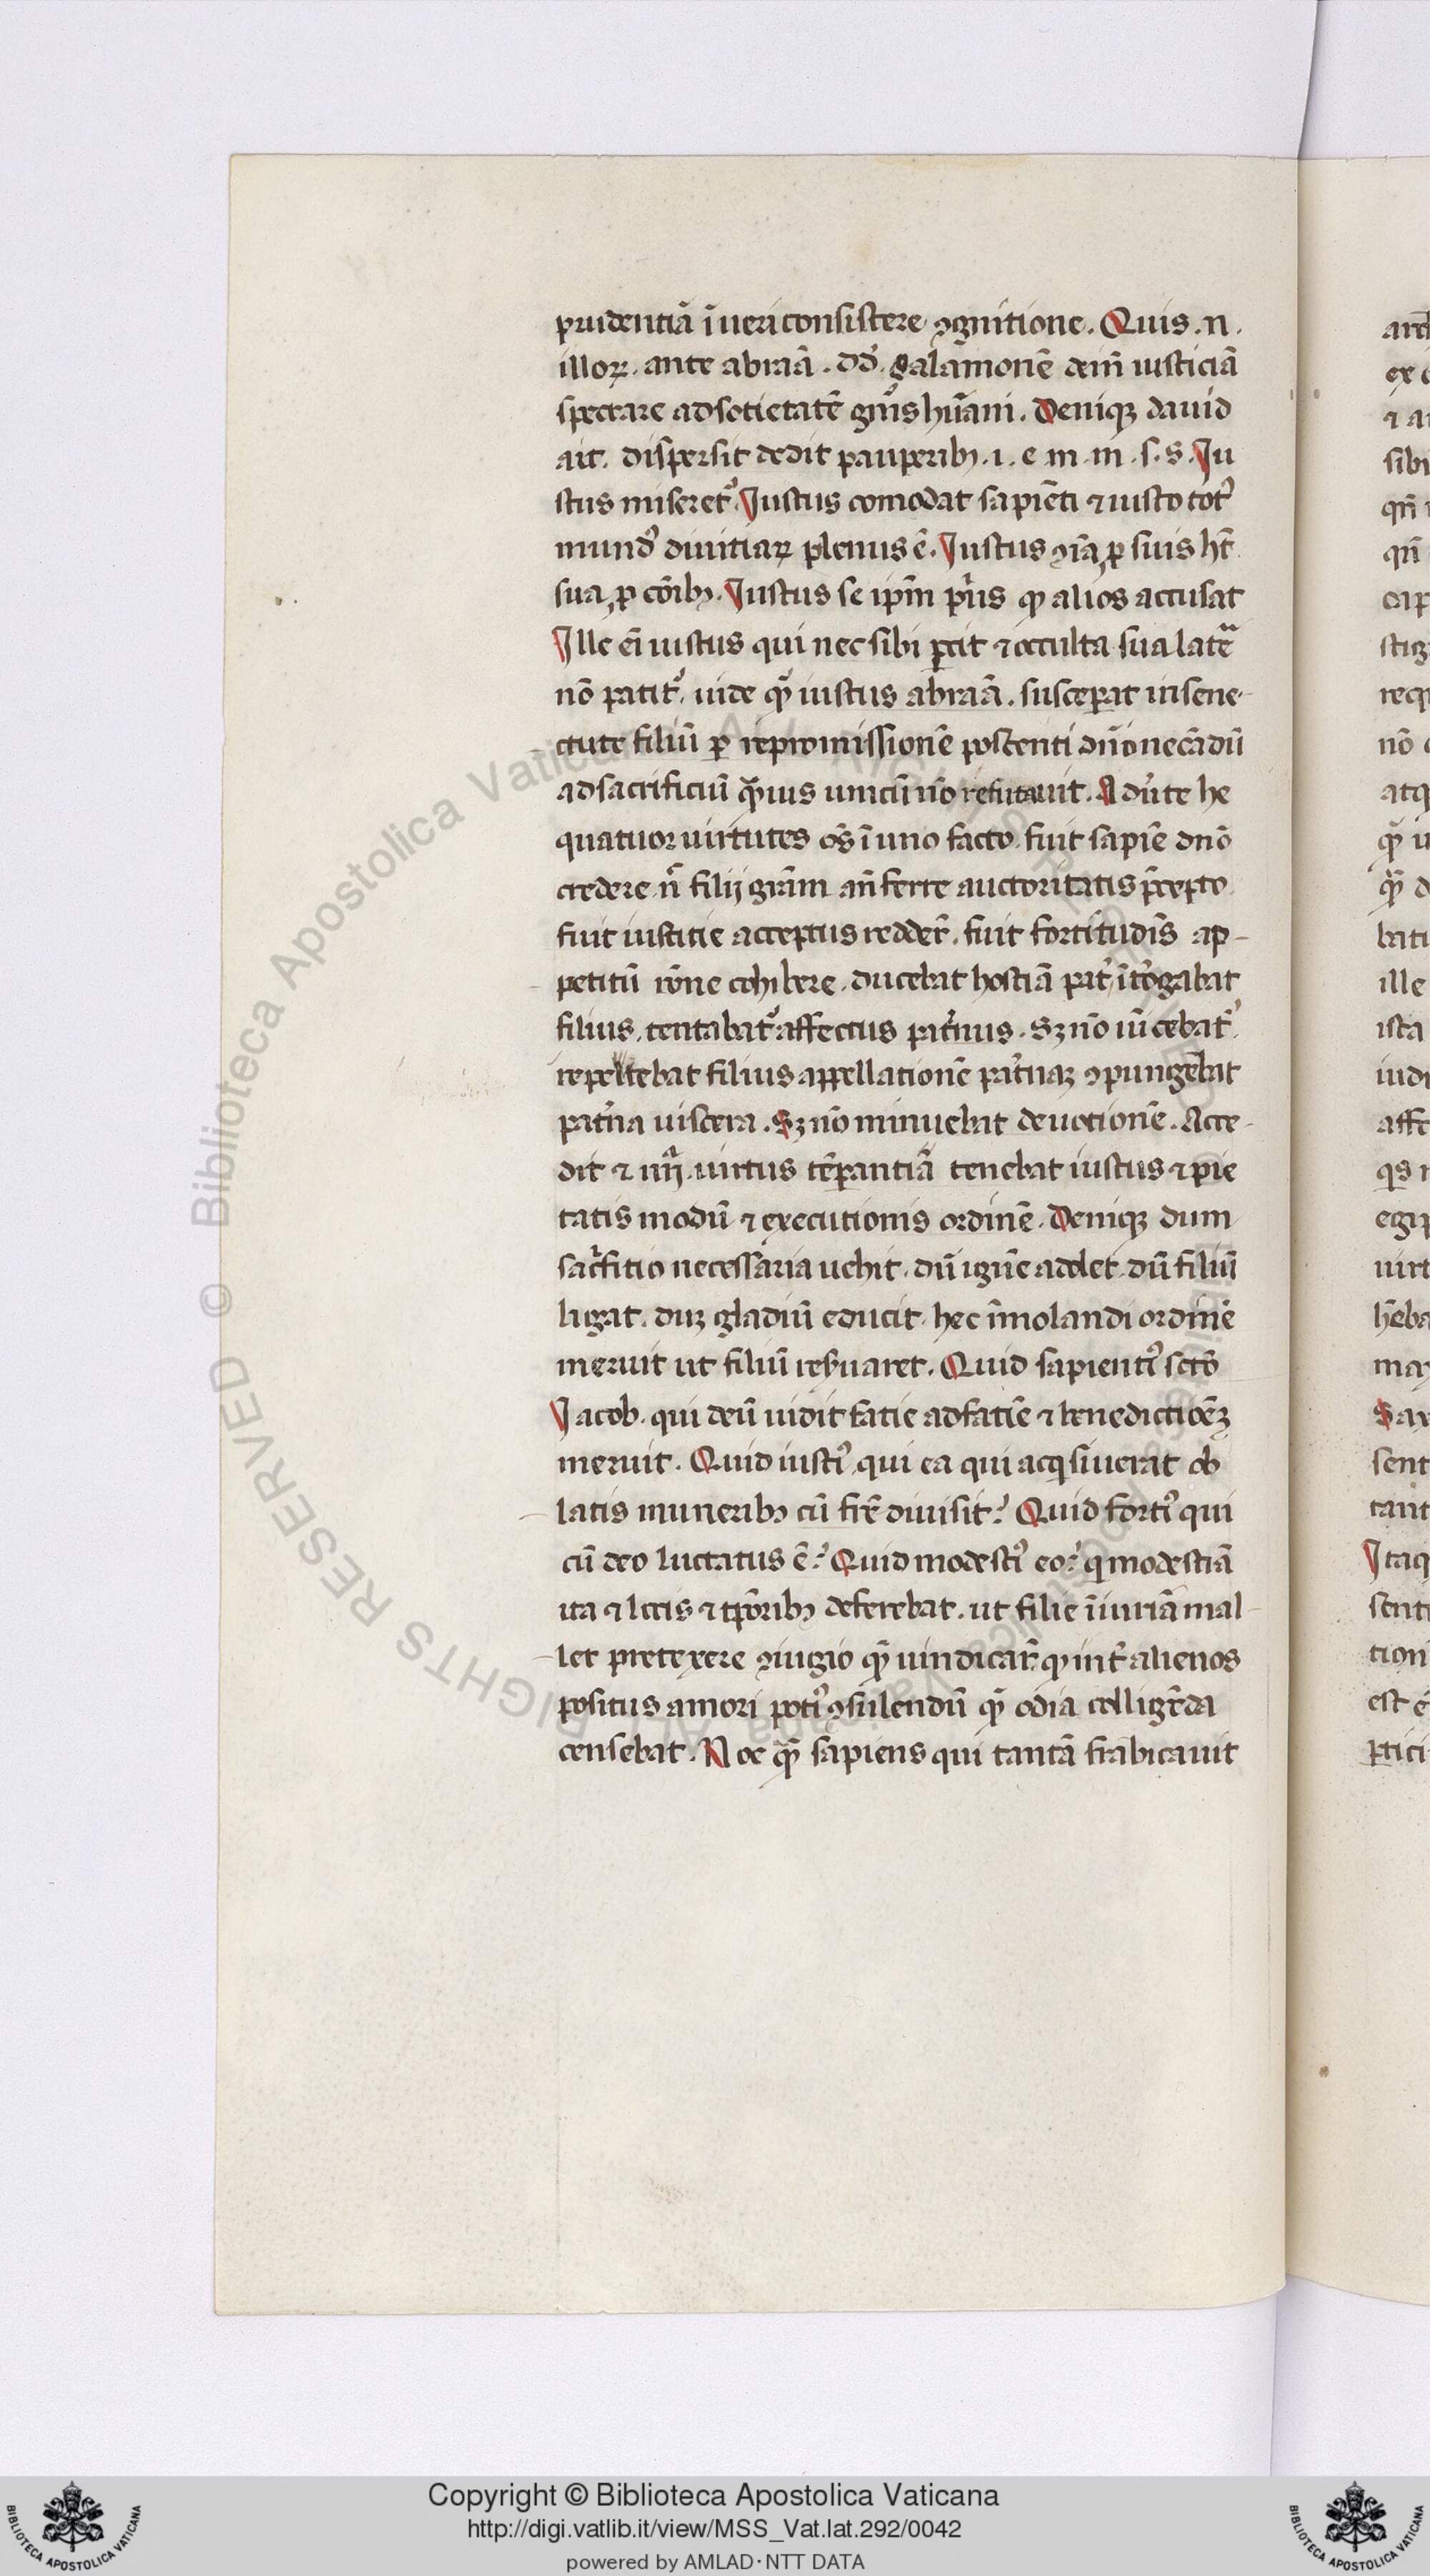 prudentiā ī ueri consistere ꝯgnitione. Quis .n.
illoꝝ. ante abraā. dd̄. salamonē deniꝫ iusticiā
spectare ad sotietatē gn̄is hūani. Deniqꝫ dauid
ait. dispersit dedit pauperibꝫ .i. e. m. m. s. s. Iu
stus miseret᷑. Iustus comodat sapiēti ⁊ iusto tot᷒
mund᷒ diuitiaꝝ plenus ē. Iustus ꝯīa ꝓ suis hт̄
sua ꝓ cōībꝫ. Iustus se ip̄m pⁱus qꝫ alios accusat
Ille eī iustus qui nec sibi ꝑcit ⁊ occulta sua latē
nō patit᷑. uide qꝫ̄ iustus abraā. suscepat in sene-
ctute filiū ꝑ repromissionē poscenti dn̄o necādū
ad sacrificiū qꝫ̄uis unicū nō refutauit. Aduꝰte he
quatuor uirtutes oēs ī uno facto. fuit sapīe dn̄o
credere. n̄ filij grām an̄ferre auctoritatis p̄cepto.
fuit iustitie acceptus redder̄. fuit fortitudīs ap-
petitū rōne cohibere. ducebat hostiā pat᷑ īt᷑ogabat
filius. tentabat᷑ affectus pat᷑nus. sꝫ nō uīcebat᷑.
repetebat filius appellationē pat᷑naꝫ ꝯpungebat
pat᷑na uiscera. sꝫ nō minuebat deuotionē. Acce-
dit ⁊ iiijᵃ. uirtus tēꝑantiā tenebat iustus ⁊ pie
tatis modū ⁊ executionis ordinē. Deniqꝫ dum
sacⁱfitio necessaria uehit. dū ignē adolet. dū filiū
ligat. duꝫ gladiū educit. hec īmolandi ordinē
meruit ut filiū reẜuaret. Quid sapienti᷒ sctō
Iacob. qui deū uidit facie ad faciē ⁊ benedictiōeꝫ
meruit. Quid iusti᷒. qui ea qui acqsiuerat ob
latis muneribꝫ cū fr̄e diuisit? Quid forti᷒ qui
cū deo luctatus ē? Quid modesti᷒ eo? qⁱ modestiā
ita ⁊ locis ⁊ tp̄oribꝫ deferebat. ut filie īiuriā mal-
let pretexere ꝯiugio qꝫ̄ uindicar̄. qꝫ int᷑ alienos
positus amori poti᷒ ꝯsulendū qꝫ̄ odia colligēda
censebat. Noe qꝫ̄ sapiens qui tantā frabicauit
Copyright © Biblioteca Apostolica Vaticana
http://digi.vatlib.it/view/MSS_Vat.lat.292/0042
powered by AMLAD·NTT DATA